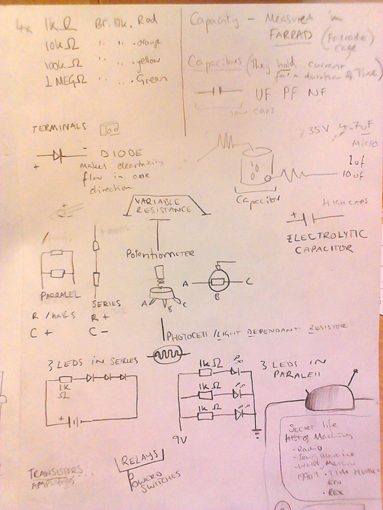 4x 1kΩ Br. Bk. Red
10kΩ " " " orange
100kΩ " " " yellow
1 MEGΩ " " " Green
Capacity - Measured in
FARRAD
Capacitors (They hold current
for a duration of Time)
UF PF NF
low caps
TERMINALS
DIODE
makes electricity
flow in one
direction
+ -
35V 4.7uF
MICRO
1uf
10uf
Capacitor
High caps
+
ELECTROLYTIC
CAPACITOR
VARIABLE
RESISTANCE
Potentiometer
A B C
A B C
PARRALEL SERIES
R R +
C + C -
PHOTOCEll / LIGHT DEPENDANT RESISTER
3 LEDS IN SERIES
1k
Ω
+
1kΩ
1kΩ
1kΩ
9V
3 LEDS IN
PARALEll
RELAYS
POWERED
SWITCHES
TRANSISTERS
Secret life
of Machines
- Radio